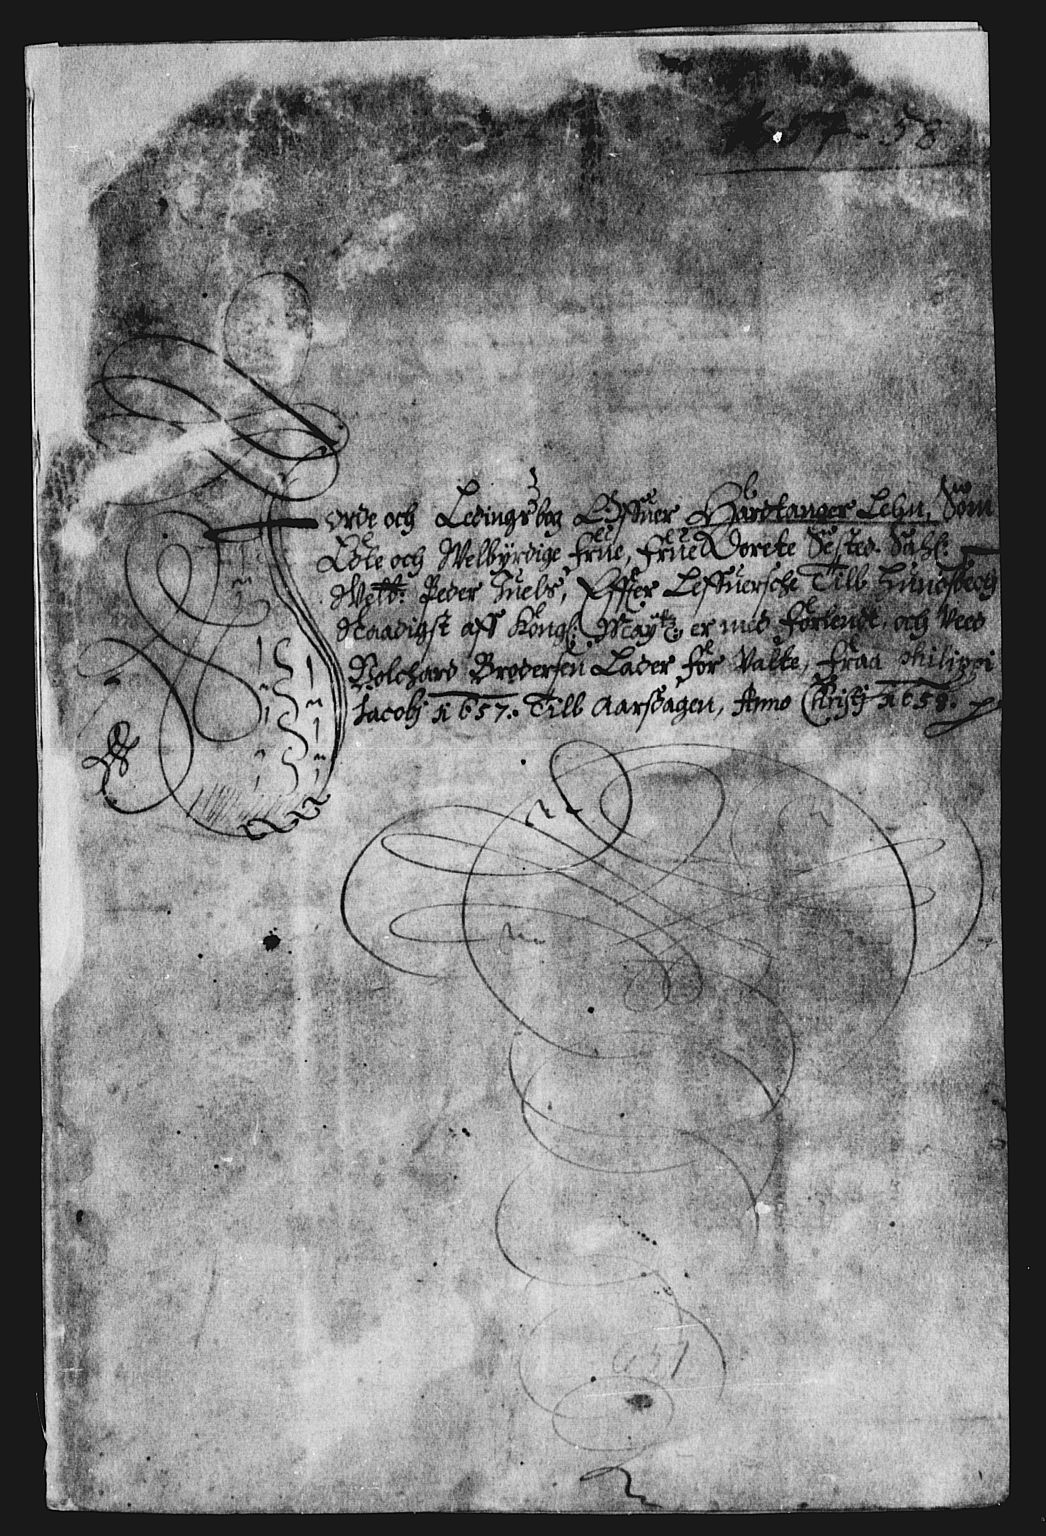 1657-58
Jorde och Ledingsbog Offuer Hardtanger Lehn, Som
Edle och Welbÿrdige frue, frue Dorete Sested. Sahl:
Peder Juels, Effter Leffuersche Till Hundsbech
Naadigst aff Kongl: Maÿtz, er med forlendt, och Veed
Bolchard Brodersen Lader for Valte, fraa philippi
Jacobj 1657. Till Aarsdagen, Anno Christj 1658.
657